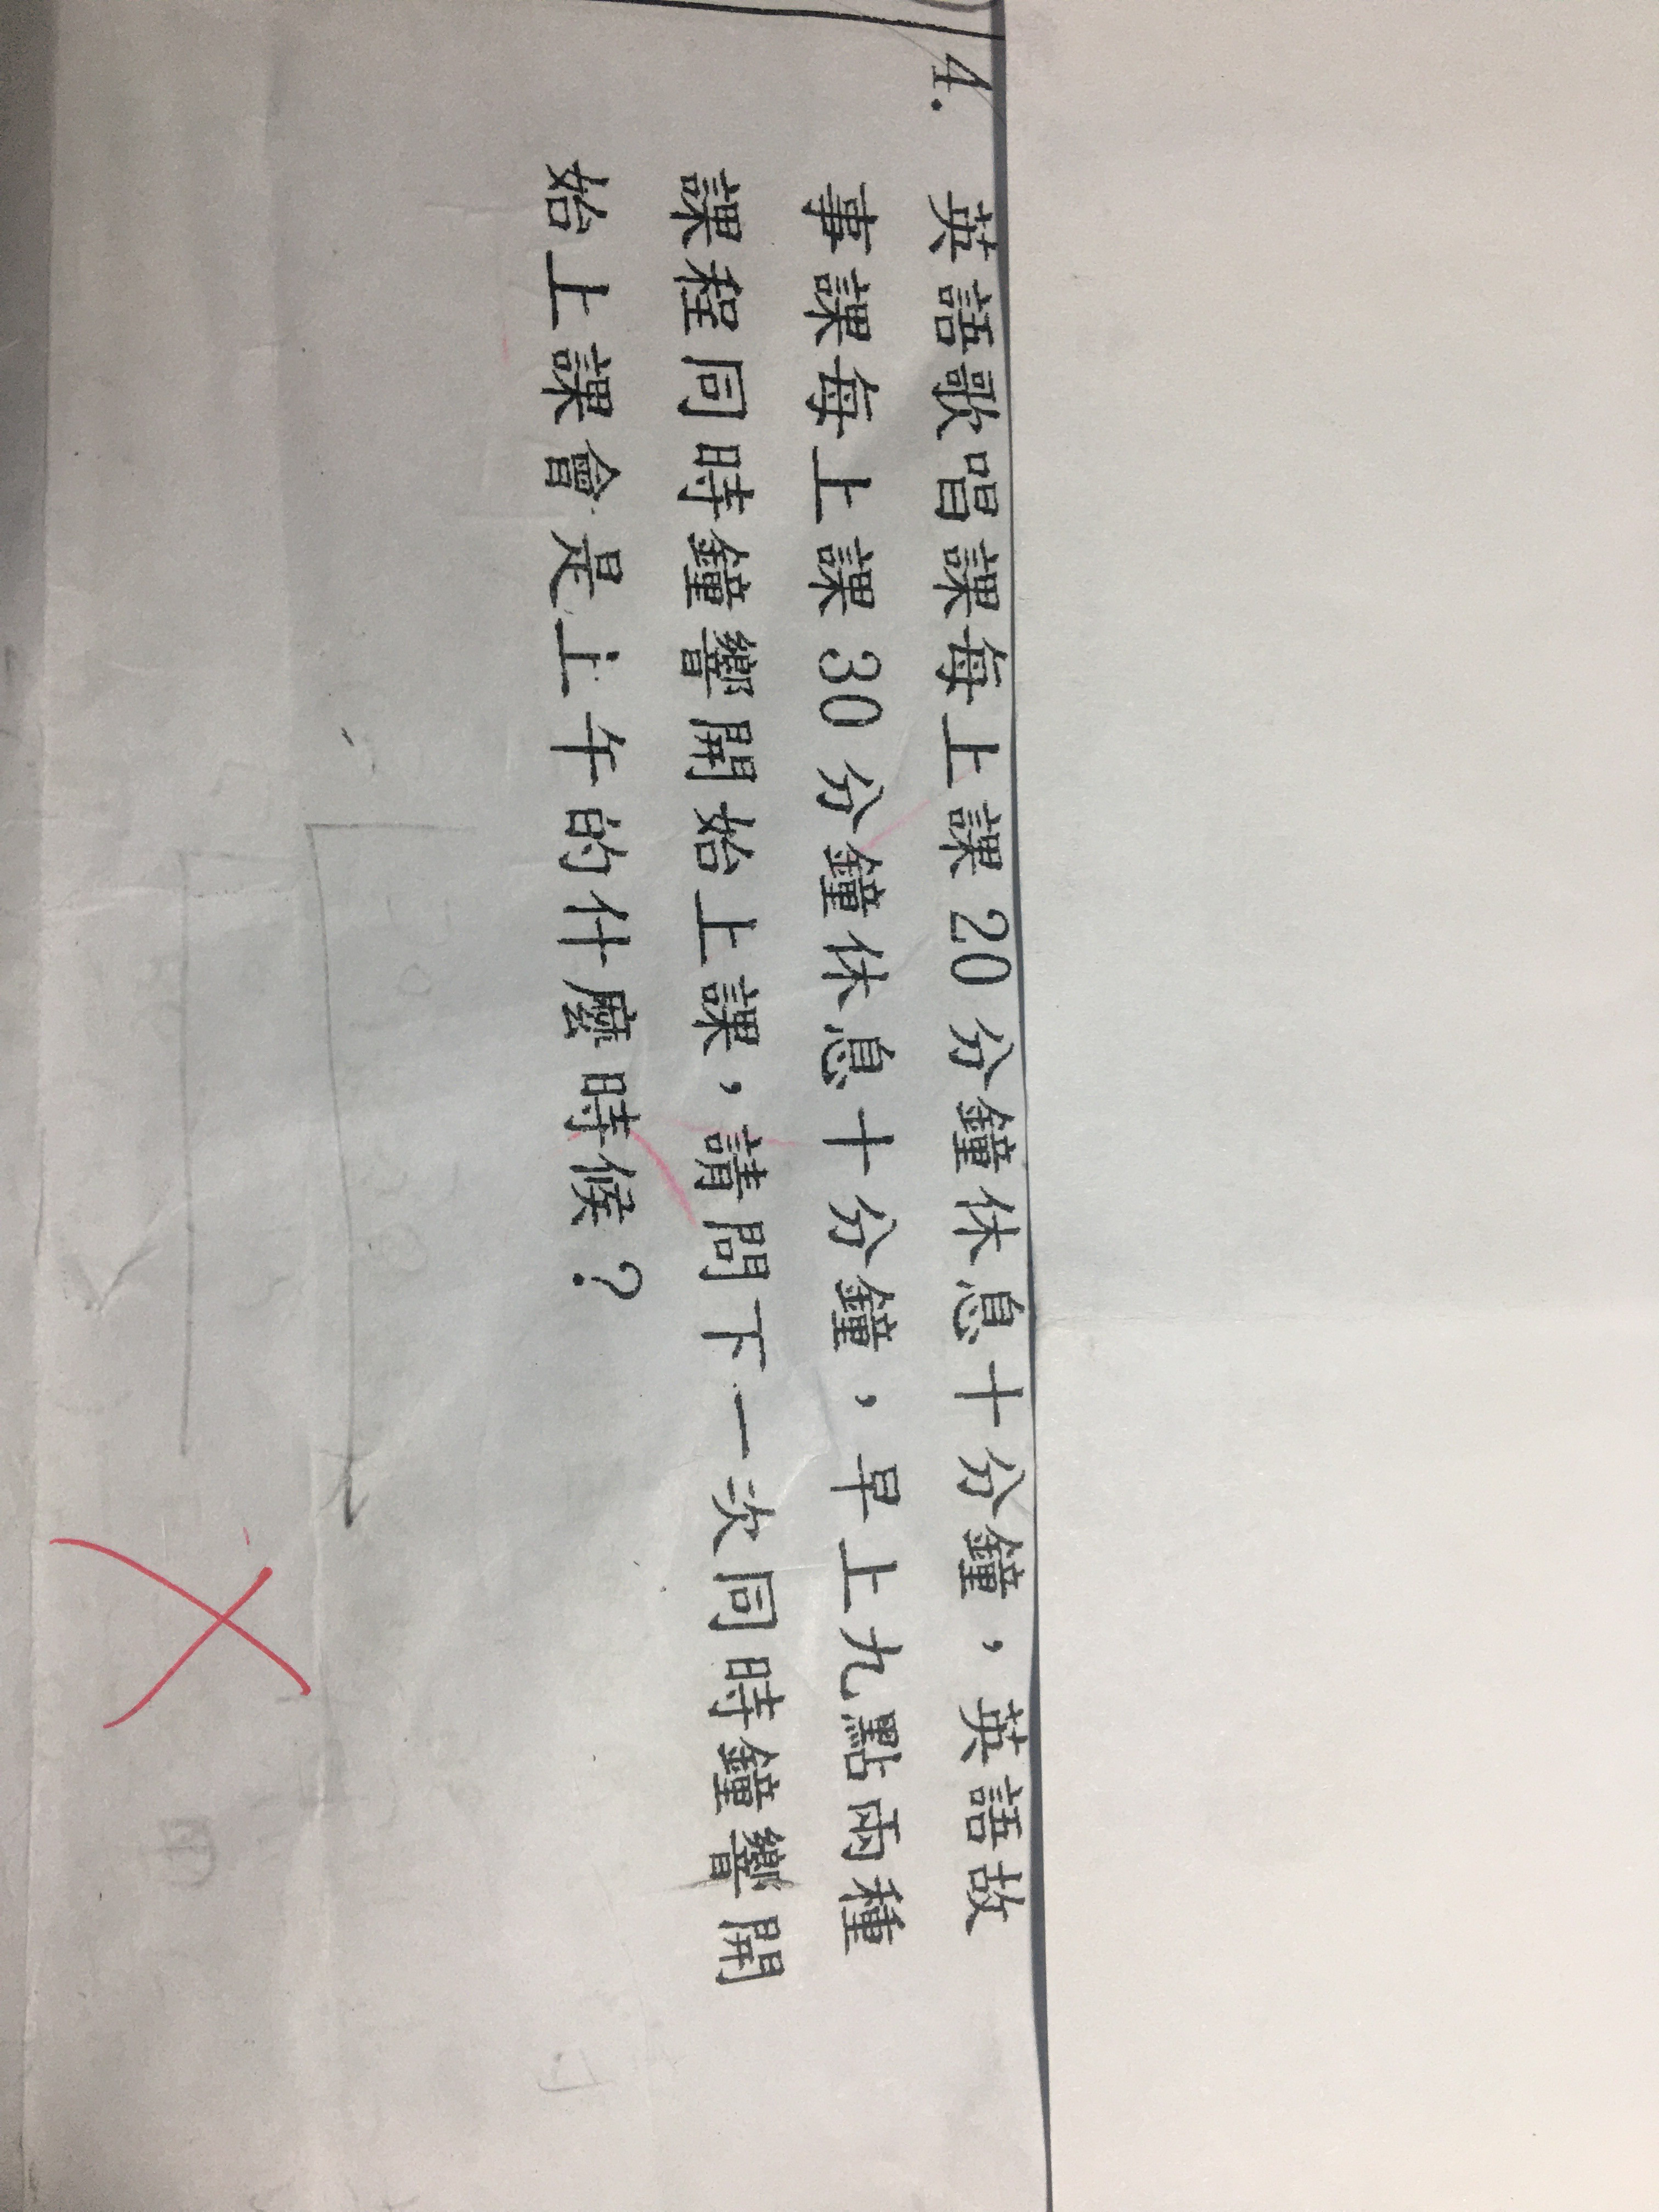 4. 英語歌唱課每上課 20 分鐘休息十分鐘，英語故
事課每上課 30 分鐘休息十分鐘，早上九點兩種
課程同時鐘響開始上課，請問下一次同時鐘響開
始上課會是上午的什麼時候？